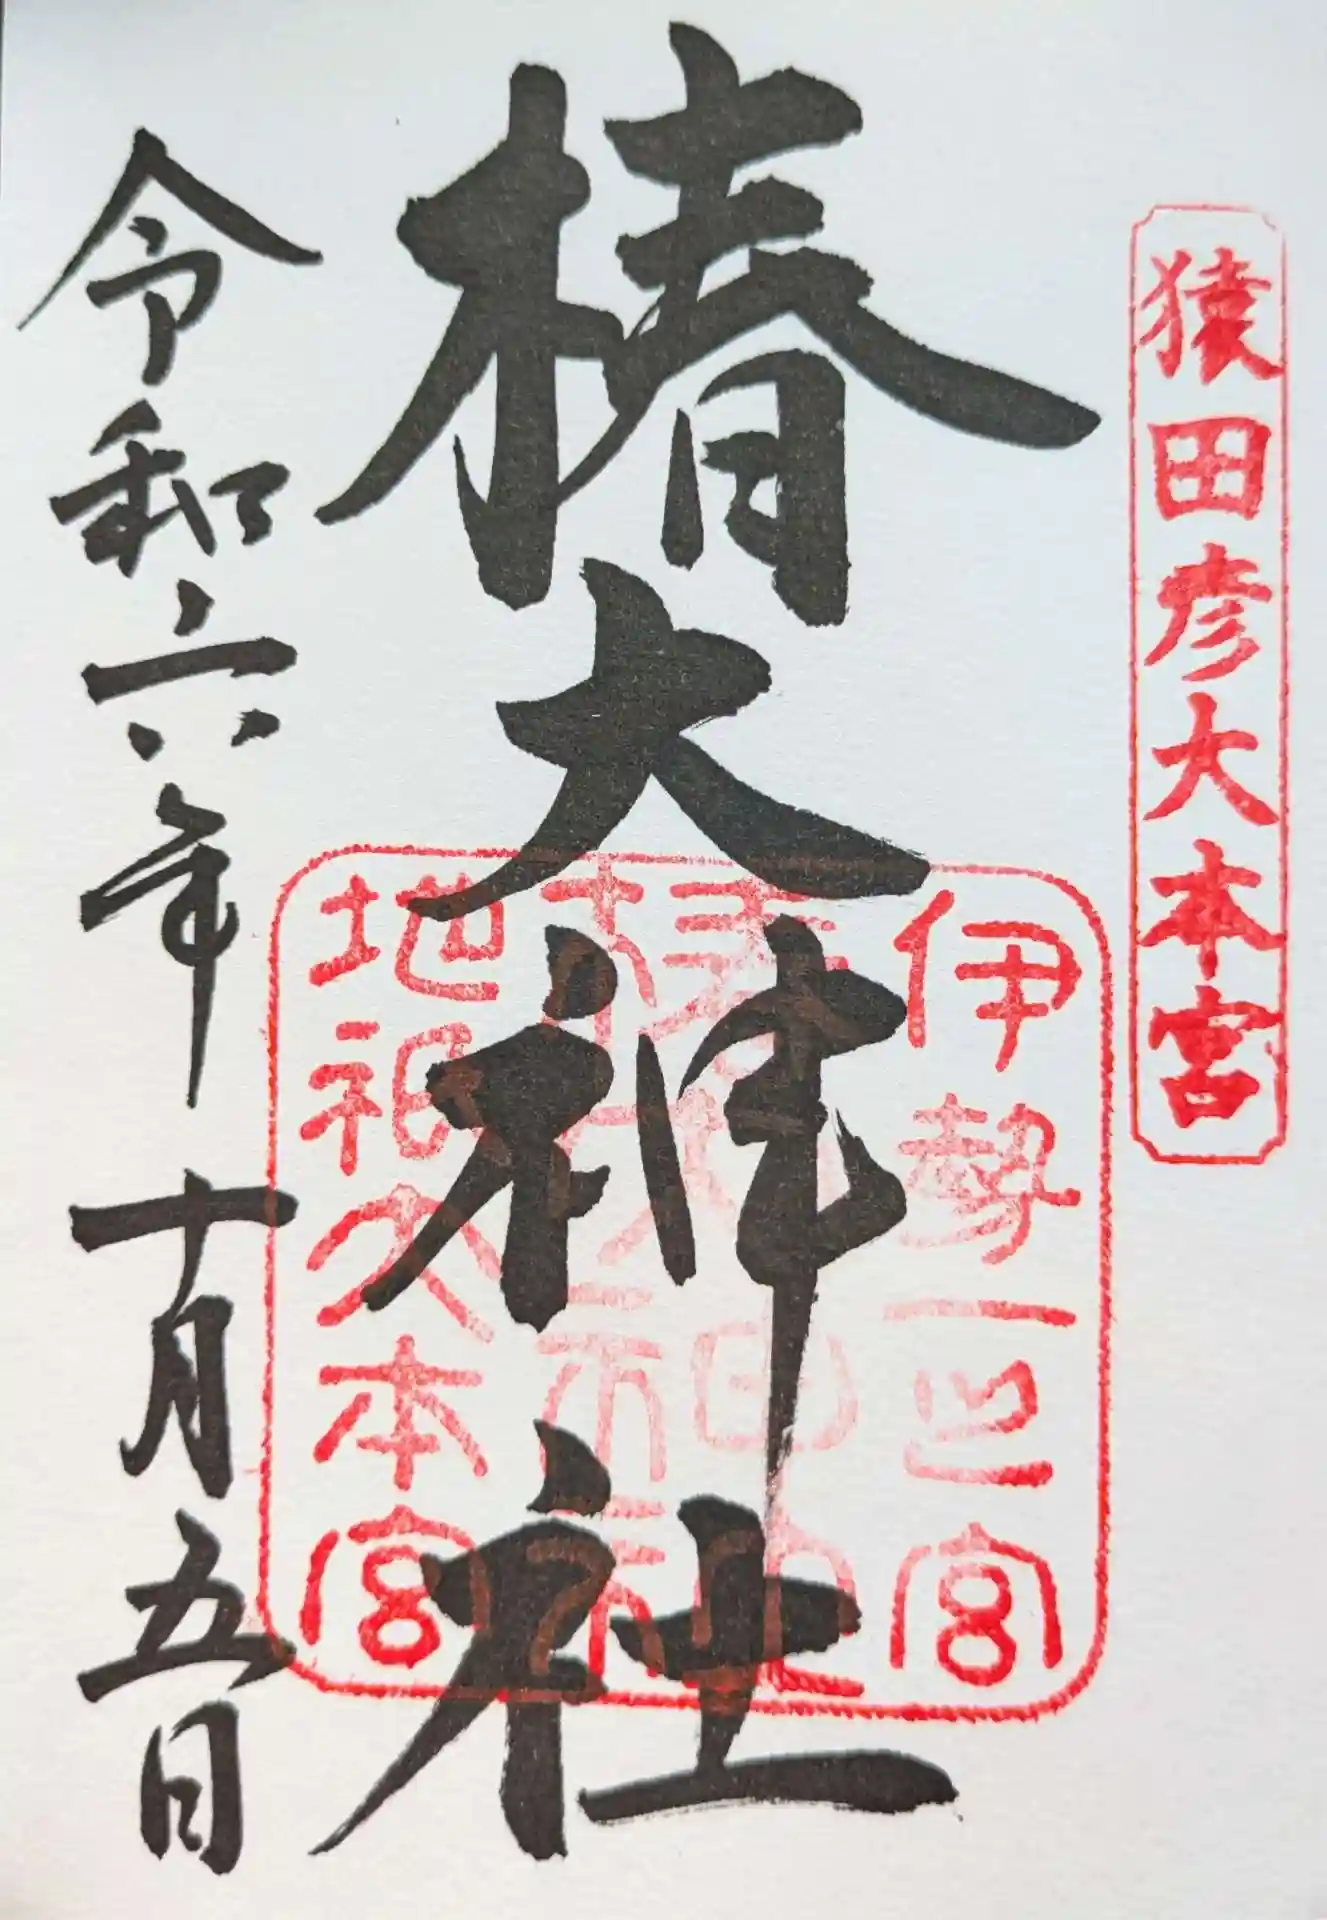 猿田彦大本宮
椿大神社
伊勢一之宮
椿大神社
地祇大本宮
令和六年十月五日